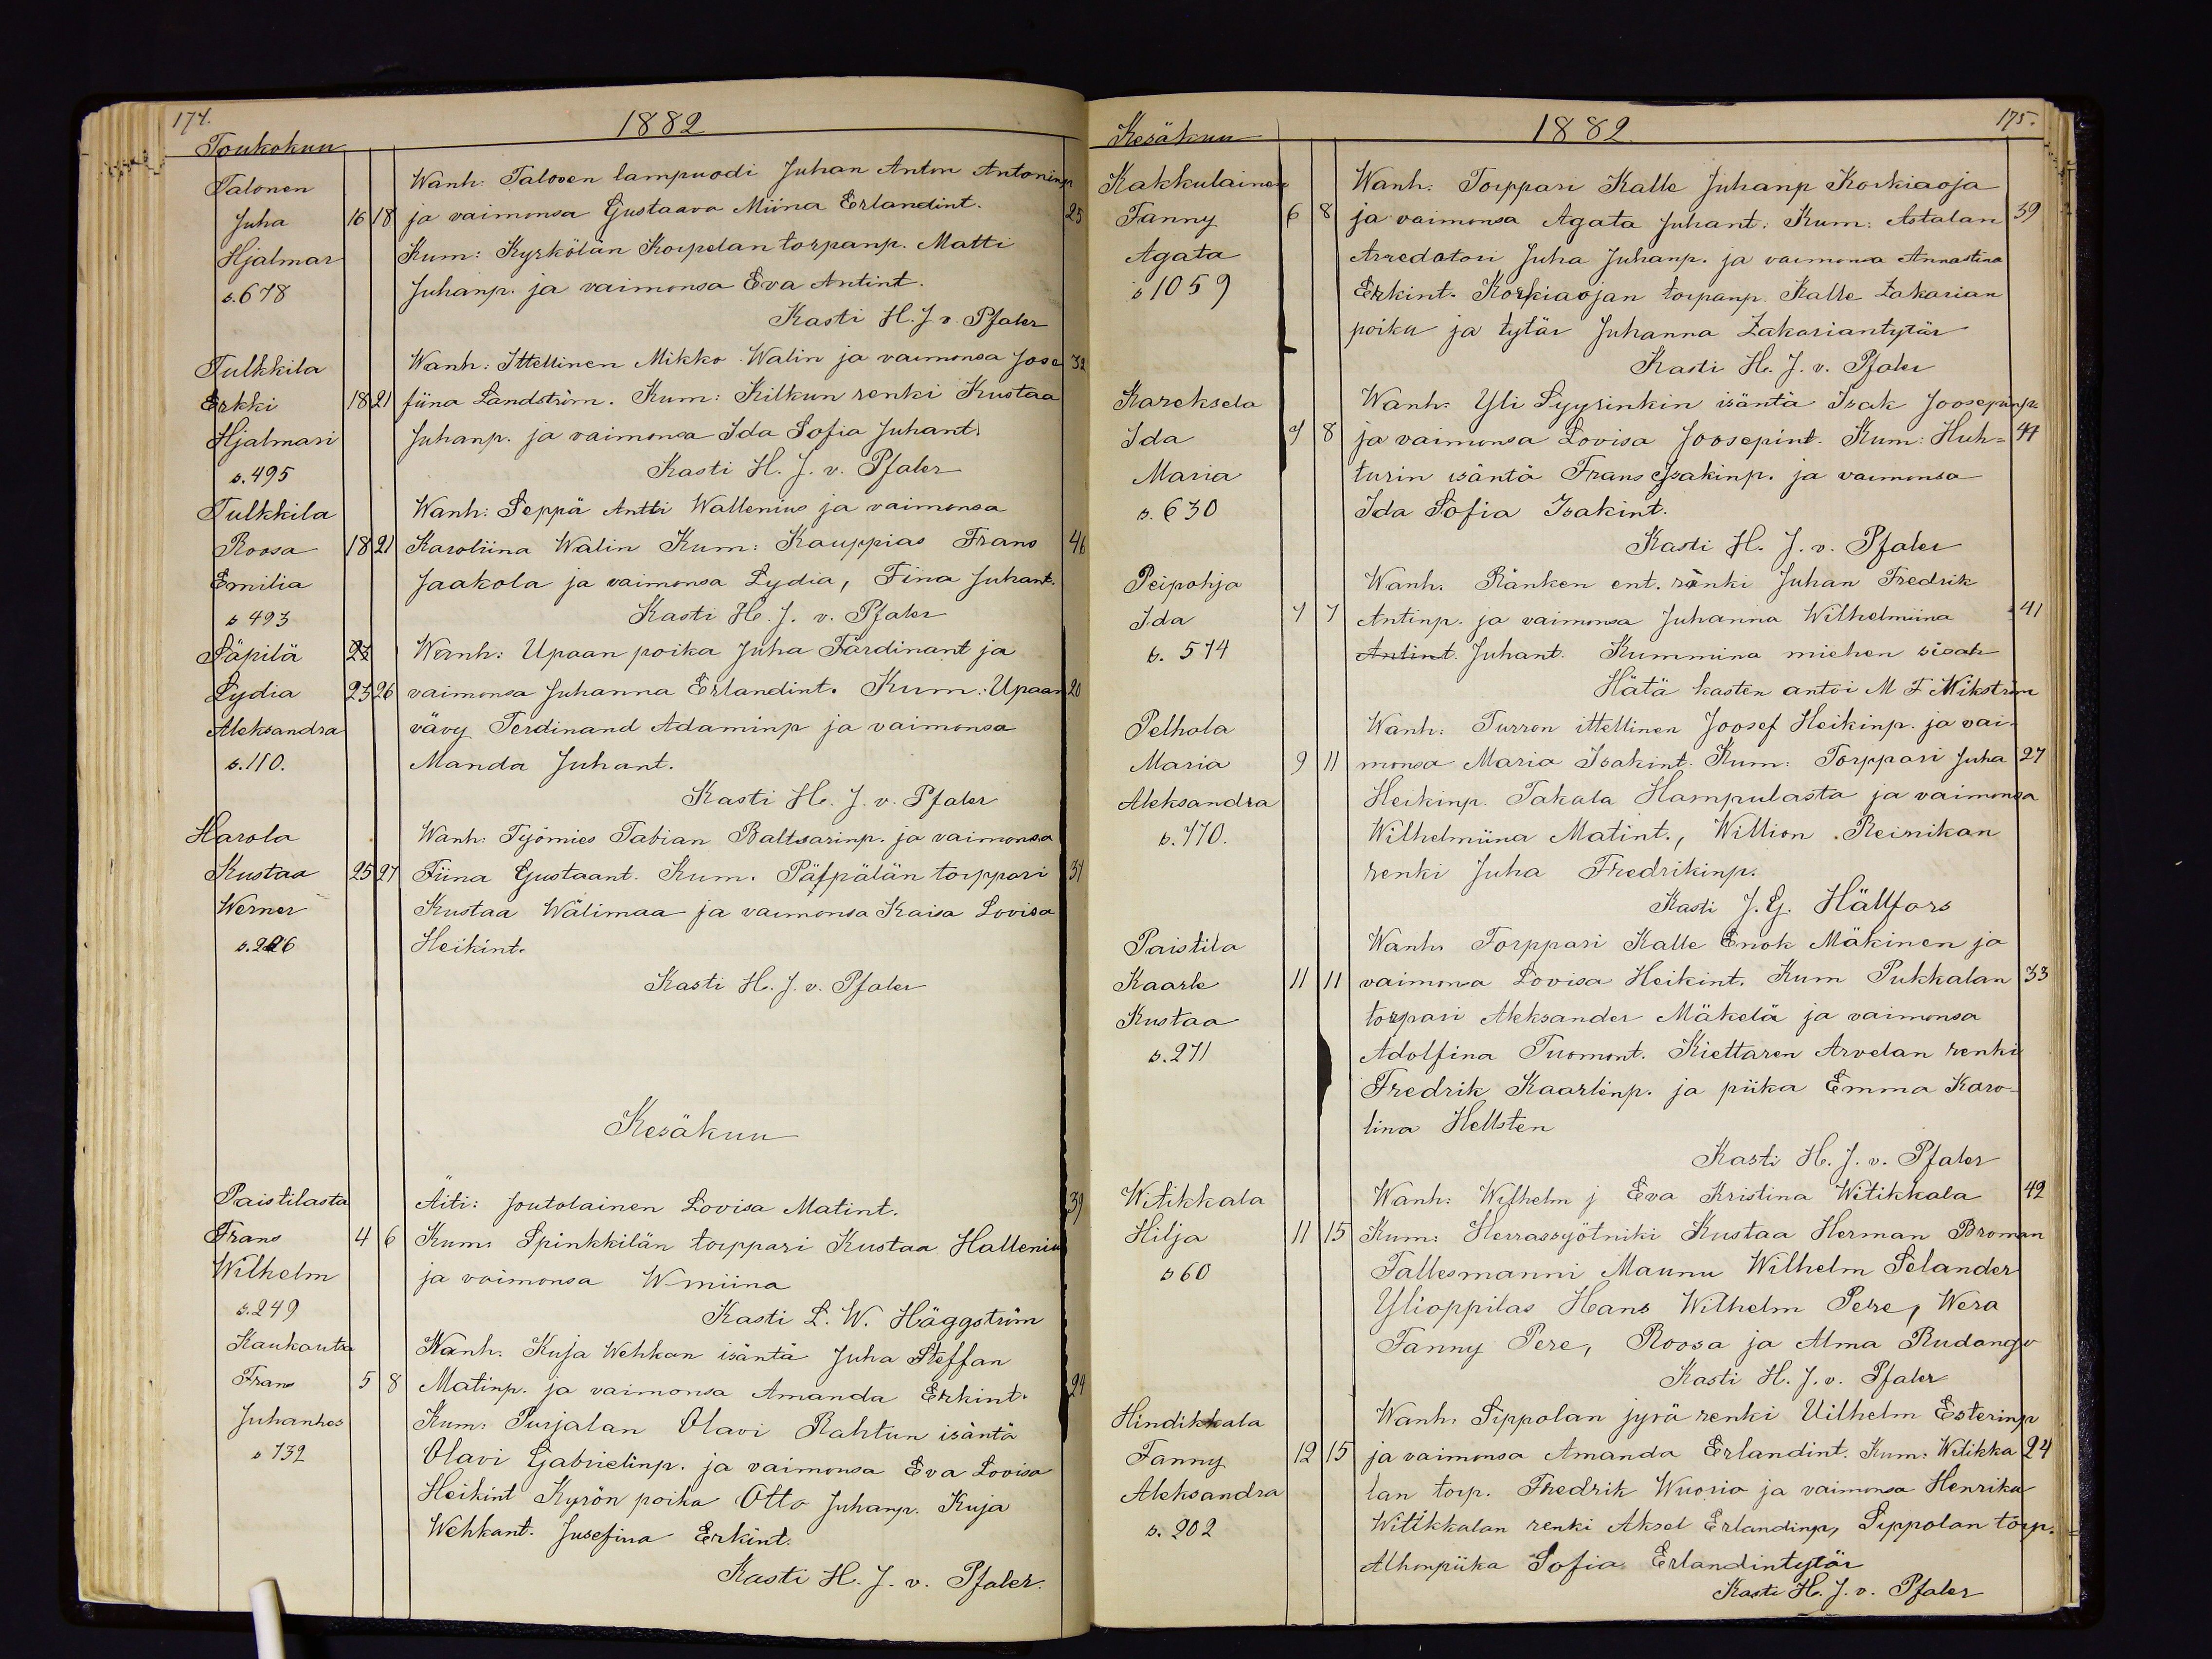 174.
1882
Toukokuu
Talonen
Wanh. Talosen lampuodi Juhan Anton Antoninp
Juha 16 18 ja vaimonsa Gustaava Miina Erlandint. 25
Hjalmar Kum: Kyrkölän Korpelan torpanp. Matti
s.678 Juhanp. ja vaimonsa Eva Antint.
Kasti H. J. v. Pfaler
Tulkkila Wanh: Ittellinen Mikko Walin ja vaimonsa Jose 32
Erkki 18 21 fiina Landström. Kum: Kilkun renki Kustaa
Hjalmari Juhanp. ja vaimonsa Ida Sofia Juhant.
s.495 Kasti H. J. v. Pfaler
Tulkkila Wanh: Seppä Antti Wallenius ja vaimonsa
Roosa 18 21 Karoliina Walin Kum: Kauppias Frans 46
Emilia Jaakola ja vaimonsa Lydia, Fina Juhant.
s 493 Kasti H. J. v. Pfaler
Säpilä 23 Wanh: Upaan poika Juha Färdinant ja
Lydia 23 26 vaimonsa Juhanna Erlandint. Kum: Upaan 20
Aleksandra vävy Ferdinand Adaminp ja vaimonsa
s.110. Manda Juhant.
Kasti H. J. v. Pfaler
Harola Wanh: Työmies Tabian Baltsarinp. ja vaimonsa
Kustaa 25 27 Fiina Gustaant. Kum. Päfpälän torppari 31
Werner Kustaa Wälimaa ja vaimonsa Kaisa Lovisa
s.226 Heikint.
Kasti H. J. v. Pfaler
Kesäkuu
Paistilasta Äiti: Joutolainen Lovisa Matint. 39
Frans 4 6 Kum: Spinkkilän torppari Kustaa Hallenius
Wilhelm ja vaimonsa W-miina
s.249 Kasti L. W. Häggström
Kaukautta Wanh. Kuja Wehkan isäntä Juha Steffan
Frans 5 8 Matinp. ja vaimonsa Amanda Erkint. 24
Juhanhes Kum: Purjalan Olavi Rahtun isäntä
s 732 Olavi Gabrielinp. ja vaimonsa Eva Lovisa
Heikint Kyrön poika Otto Juhanp. Kuja
Wehkant. Jusefina Erkint.
Kasti H. J. v. Pfaler.
175.
1882
Kesäkuu
Kakkulainen Wanh. Torppari Kalle Juhanp Korkiaoja
Fanny 6 8 ja vaimonsa Agata Juhant. Kum: Astalan 39
Agata Arredatori Juha Juhanp. ja vaimonsa Annastina
s 1059 Erkint. Korkiaojan torpanp. Kalle Zakarian
poika ja tytär Juhanna Zakariantytär
Kasti H. J. v. Pfaler
Kareksela Wanh. Yli Syyrinkin isäntä Isak Joosepinp.
Ida 7 8 ja vaimonsa Lovisa Joosepint. Kum: Huh= 44
Maria turin isäntä Frans Isakinp. ja vaimonsa
s. 630 Ida Sofia Isakint.
Kasti H. J. v. Pfaler
Peipohja Wanh. Ränken ent. renki Juhan Fredrik
Ida 7 7 Antinp. ja vaimonsa Juhanna Wilhelmiina 41
s. 574 Antint. Juhant. Kummina miehen sisar
Hätä kasten antoi M F Wikström
Pelhola Wanh: Turron ittellinen Joosef Heikinp. ja vai-
Maria 9 11 monsa Maria Isakint. Kum: Torppari Juha 27
Aleksandra Heikinp. Takala Hampulasta ja vaimonsa
s. 770. Wilhelmiina Matint., Willion Reinikan
renki Juha Fredrikinp.
Kasti J. G. Hällfors
Paistila Wanh. Torppari Kalle Enok Mäkinen ja
Kaarle 11 11 vaimonsa Lovisa Heikint. Kum Pukkalan 33
Kustaa torpari Aleksander Mäkelä ja vaimonsa
s. 271 Adolfina Tuomont. Kiettaren Arvelan renki
Fredrik Kaarlinp. ja piika Emma Karo-
lina Hellsten
Kasti H. J. v. Pfaler
Witikkala Wanh: Wilhelm j Eva Kristina Witikkala 42
Hilja 11 15 Kum: Herrassyötniki Kustaa Herman Broman
s 60 Fallesmanni Maunu Wilhelm Selander
Ylioppilas Hans Wilhelm Pere, Wera
Fanny Pere, Roosa ja Alma Rudango
Kasti H. J. v. Pfaler
Hindikkala Wanh. Sippolan jyvä renki Uilhelm Esterinp
Fanny 12 15 ja vaimonsa Amanda Erlandint. Kum: Witikka 24
Aleksandra lan torp. Fredrik Wuorio ja vaimonsa Henrika
s. 202 Witikkalan renki Aksel Erlandinp, Sippolan torp.
Alhonpiika Sofia Erlandintytär
Kasti H. J. v. Pfaler